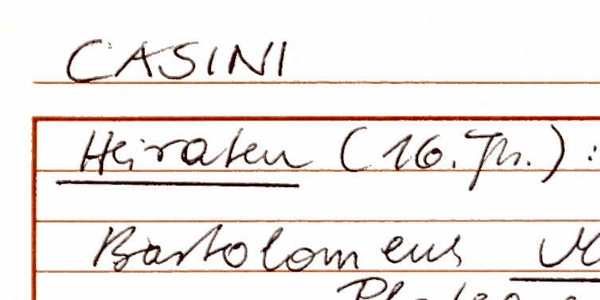 CASINI
Heiraten (16. Jh.) :
Bartolomeus